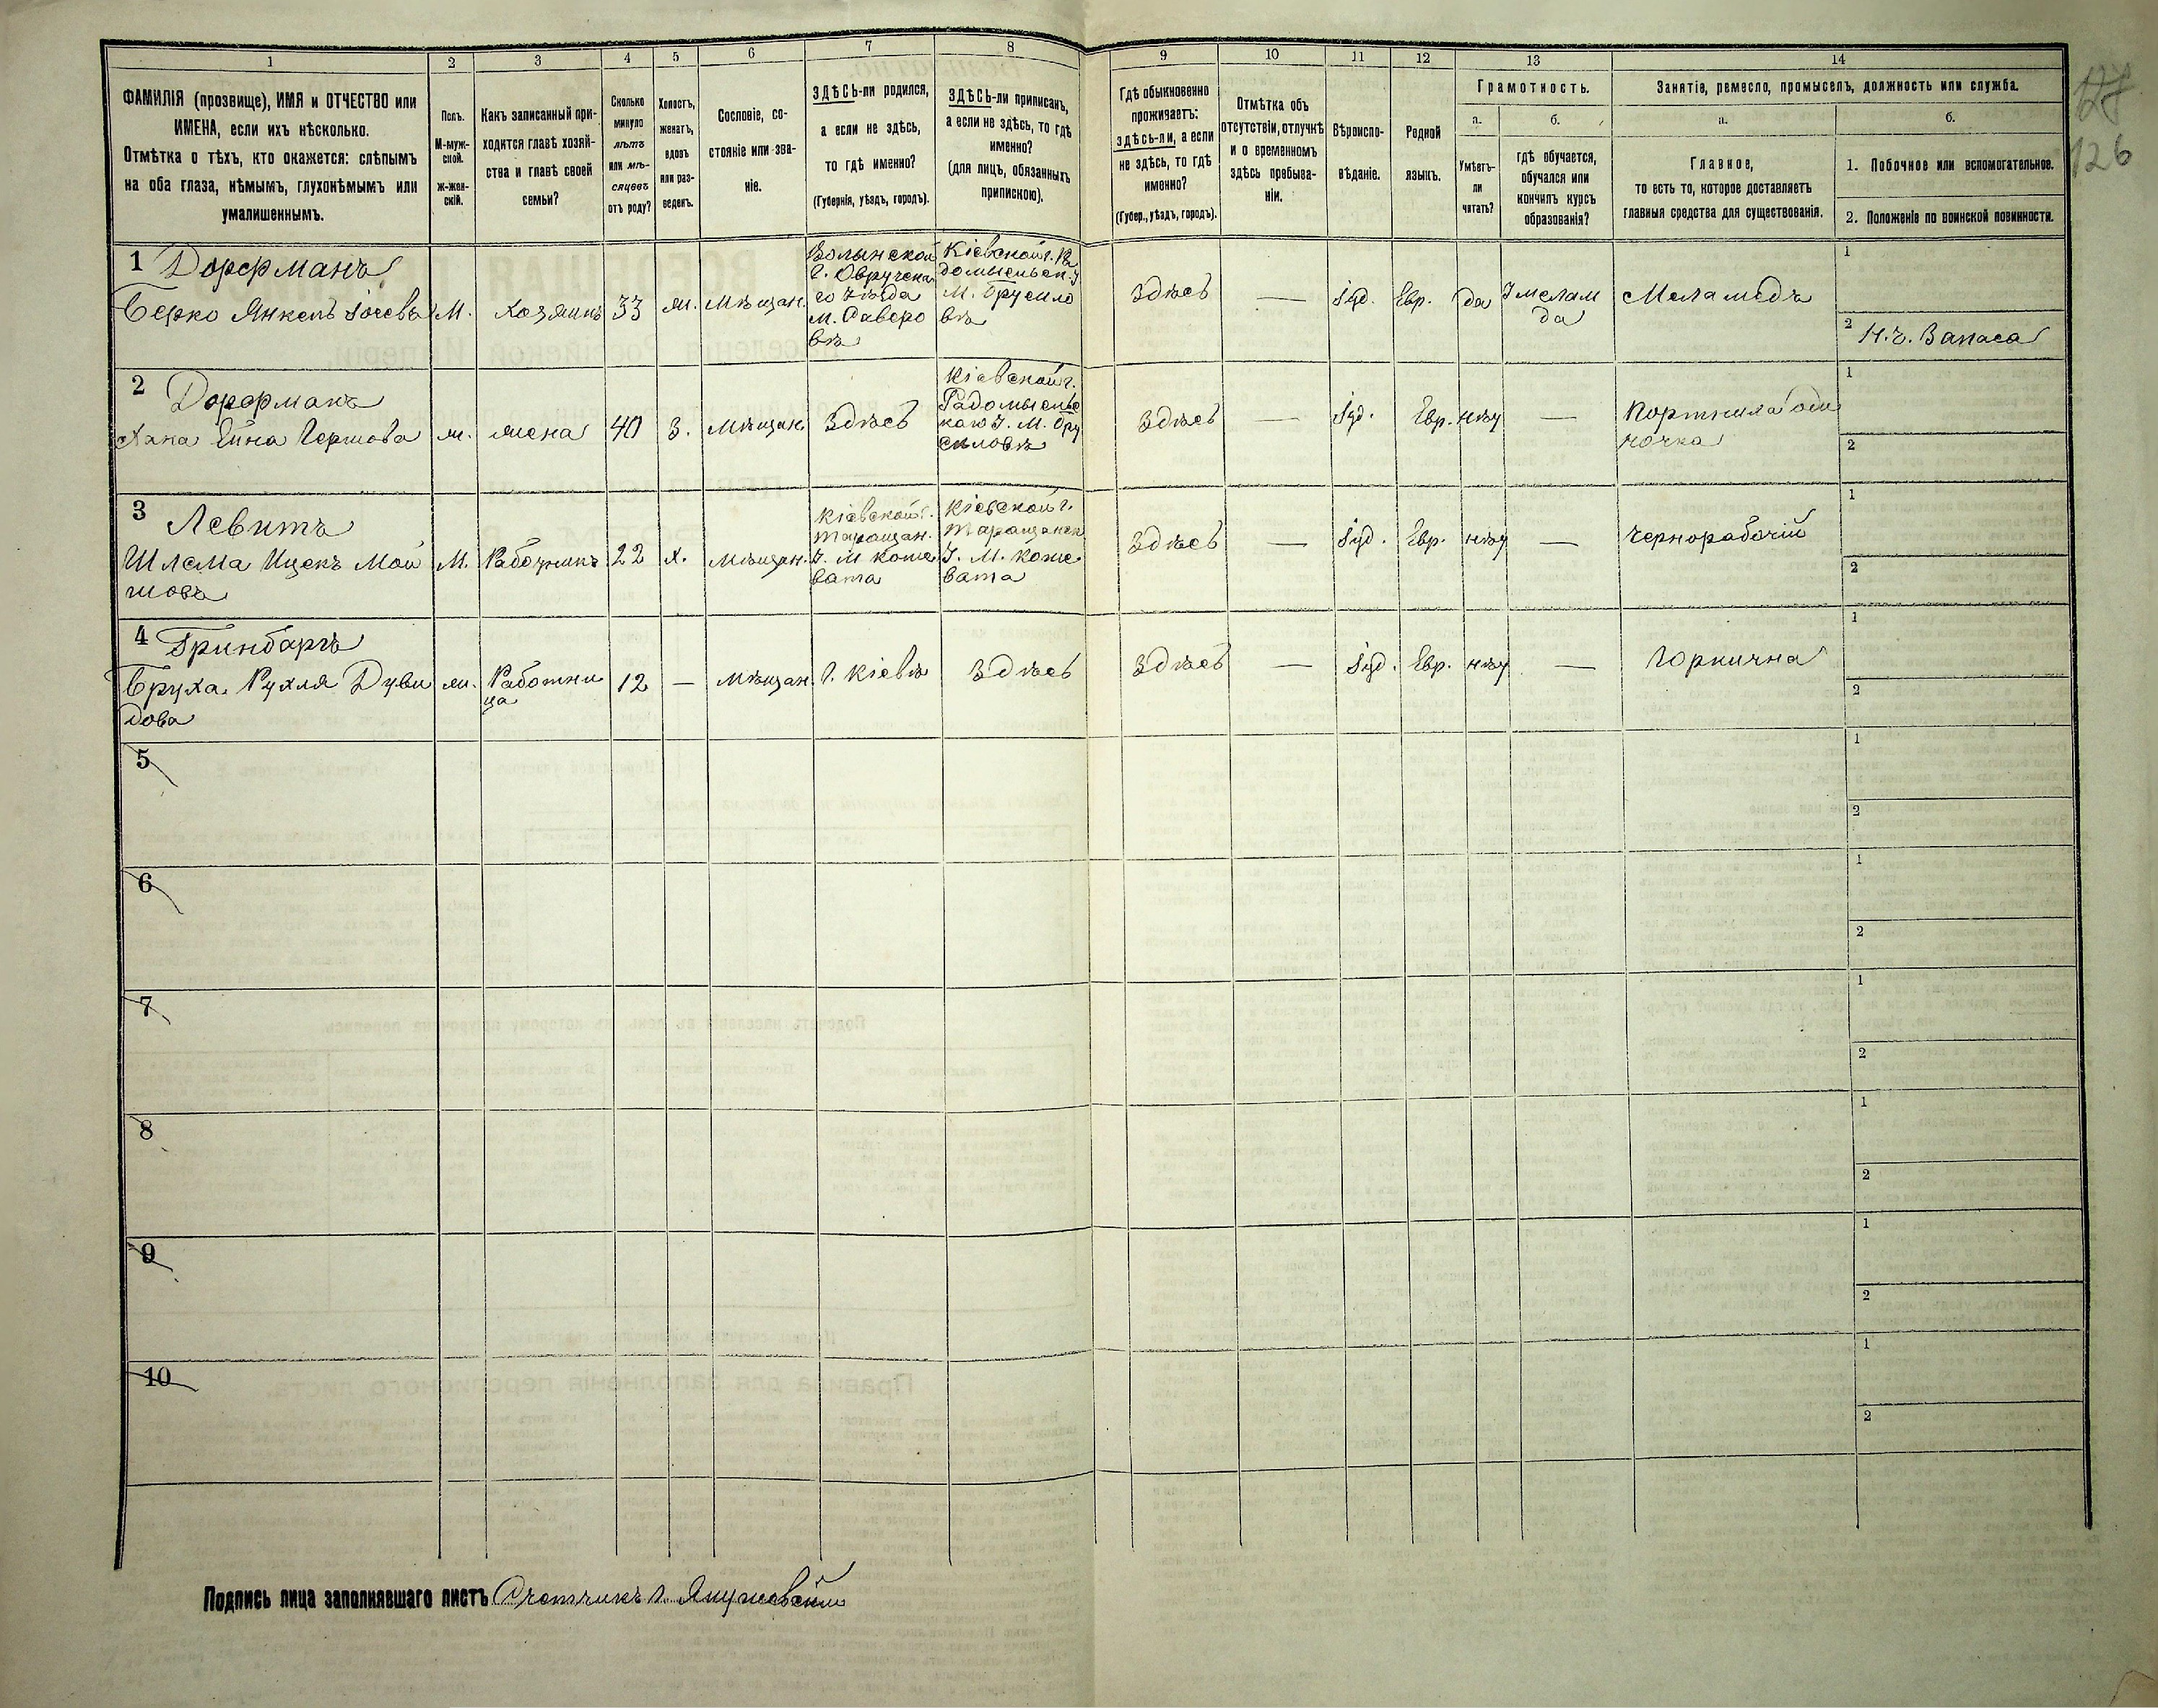 1
2
3
4
5
6
7
8
9
10
11
12
13
14
ФАМИЛІЯ (прозвище), ИМЯ и ОТЧЕСТВО или
ИМЕНА, если ихъ нѣсколько.
Отмѣтка о тѣхъ, кто окажется: слѣпымъ
на оба глаза, нѣмымъ, глухонѣмымъ или
умалишеннымъ.
Полъ.
М-муж-
ской.
Ж-жен-
скій.
Какъ записанный при-
ходится главѣ хозяй-
ства и главѣ своей
семьи?
Сколько
минуло
лѣтъ
или мѣ-
сяцевъ
отъ роду?
Холостъ,
женатъ,
вдовъ
или раз-
веденъ.
Сословіе, со-
стояніе или зва-
ніе.
ЗДѢСЬ-ли родился,
а если не здѣсь,
то гдѣ именно?
(Губернія, уѣздъ, городъ).
ЗДѢСЬ-ли приписанъ,
а если не здѣсь, то гдѣ
именно?
(для лицъ, обязанныхъ
припискою).
Гдѣ обыкновенно
проживаетъ:
здѣсь-ли, а если
не здѣсь, то гдѣ
именно?
(Губер., уѣздъ, городъ).
Отмѣтка объ
отсутствіи, отлучкѣ
и о временномъ
здѣсь пребыва-
ніи.
Вѣроиспо-
вѣданіе.
Родной
языкъ.
Грамотность.
а.
Умѣетъ-
ли
читать?
б.
гдѣ обучается,
обучался или
кончилъ курсъ
образованія?
Занятіе, ремесло, промыселъ, должность или служба.
а.
Главное,
то есть то, которое доставляетъ
главныя средства для существованія.
б.
1. Побочное или вспомогательное.
2. Положеніе по воинской повинности.
127
126
1 Дорфманъ
Берко Янкель Іосевъ
М.
Хозяинъ
33
ж.
Мѣщан.
Волынской
г. Овручска
го Уѣзда
м. Словеро
вѣ
Кіевской г. Ра
домысльск. У
М. Брусило
вѣ
Здѣсь
—
Іуд.
Евр.
да
У мелам
да
Меламедъ
1
2 Н. ч. Запаса
2
Дорфманъ
Хана Ейна Гершова
ж.
жена
40
З.
Мѣщан
Здѣсь
Кіевской г.
Радомысльс
каго У. М. Бру
силовѣ
Здѣсь
—
Іуд.
Евр.
нѣт
—
Портниха оди
ночка
1
2
3
Левитъ
Шлема Ицекъ Мой
шовъ
М.
Работникъ
22
Х.
Мѣщан.
Кіевской г.
Таращан.
У. М Коше
вата
Кіевской г.
Таращанск
У. М. Коше
вата
Здѣсь
—
Іуд.
Евр.
нѣт
—
Чернорабочій
1
2
4
Гринбаргъ
Бруха Рухля Дуви
дова
ж.
Работни
ца
12
—
Мѣщан.
г. Кіевѣ
Здѣсь
Здѣсь
—
Іуд.
Евр.
нѣт
—
Горнична
1
2
5
1
2
6
1
2
7
1
2
8
1
2
9
1
2
10
1
2
Подпись лица заполнявшаго листъ Счетчикъ